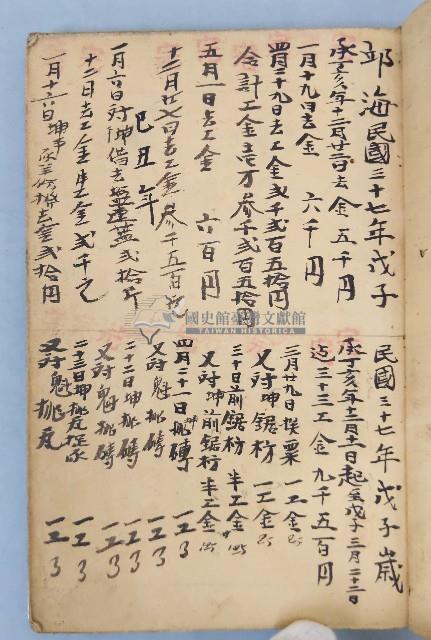 邱海民國三十七年戊子
承丁亥年十二月廿二日去金五千円
一月十九日去金 六千円
四月二十九日去工金弍千弍百五拾円
合計工金壱万参千弍百五拾円
五月一日去工金 六百円
十二月廿七日去工金参千五百
己丑年
一月六日対坤借去 弍拾斤
十二日去工金 金弍千元
一月十六日坤 去金弍拾円
民國三十七年戊子歳
承丁亥年十二月十一日起至戊子三月二十二日
迄三十三工金九千五百円
三月廿九日 粟 一工金
又対坤鋸枋 一工金
三十日前鋸枋 半工金
又対坤前鋸枋 半工金
四月二十一日 挑磚 一工
又対魁挑磚 一工
二十二日坤挑磚 一工
又対魁挑磚 一工
二十三日坤挑瓦 一工
又対魁挑瓦 一工
國史館臺灣文獻館
TAIWAN HISTORICA